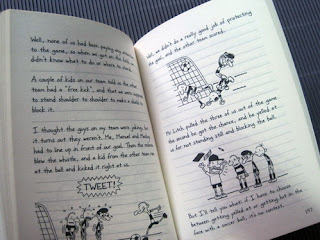 Well, none of us had been paying any attention
to the game, so when we got on the field we
didn't know what to do or where to stand.
A couple of kids on our team told us the other
team had a "free kick", and that we were supposed
to stand shoulder to shoulder to make a shield to
block it.
I thought the guys on my team were joking, but
it turns out they weren't. Me, Manuel and Mackey
had to line up in front of our goal. Then the referee
blew the whistle, and a kid from the other team ran
at the ball and kicked it right at us.
TWEET!
Well, we didn't do a really good job of protecting
the goal, and the other team scored.
Mr Litch pulled the three of us out of the game
the second he got the chance, and he yelled at
us for not standing still and blocking the ball.
But I'll tell you what: if I have to choose
between getting yelled at or getting hit in the
face with a soccer ball, it's no contest.